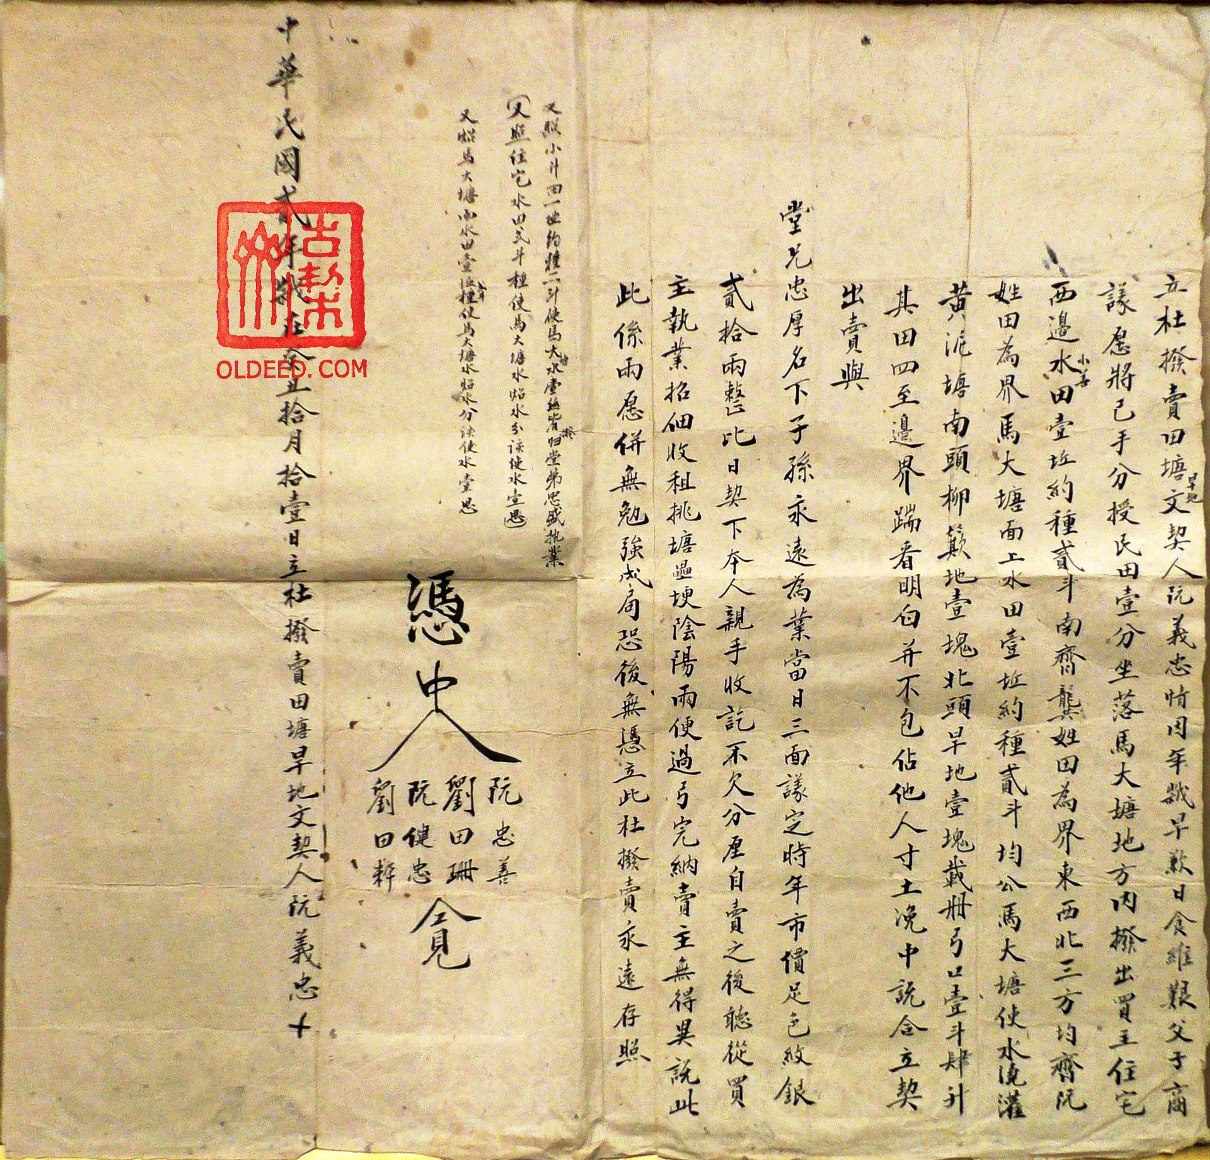 立杜撥賣田塘旱地文契人阮義忠情因年歲旱歉日食維艱父子商
議愿將己手分授民田壹分坐落馬大塘地方內撥出買主住宅
西邊水田壹坵約種貳斗南齊龔姓田為界東西北三方均齊阮
姓田為界馬大塘面上水田壹坵約種貳斗均公馬大塘使水澆灌
黃泥塘南頭柳 地壹塊北頭旱地壹塊載册弓口壹斗肆升
其田四至邊界踹看明白并不包佔他人寸土浼中說合立契
出賣與
堂兄忠厚名下子孫永遠為業當日三面議定時年市價足色紋銀
貳拾兩整比日契下本人親手收訖不欠分厘自賣之後聽從買
主執業招佃收租挑塘 埂陰陽兩便過弓完納賣主無得異說此
此係兩愿併無勉強成局恐後無憑立此杜撥賣永遠存照
又照小斗田一坵約種二斗使馬大水 歸堂弟忠盛執業
又照住宅水田弍斗種使馬大塘水 水分該使水壹
又照馬大塘 水田壹坵種使馬大塘水 水分該使水壹
憑中人
阮忠善
劉田珊
阮健忠
劉田粹
仝見
中華民國貳年歲在癸丑拾月拾壹日立杜撥賣田塘旱地文契人阮義忠十
古契
OLDEED.COM